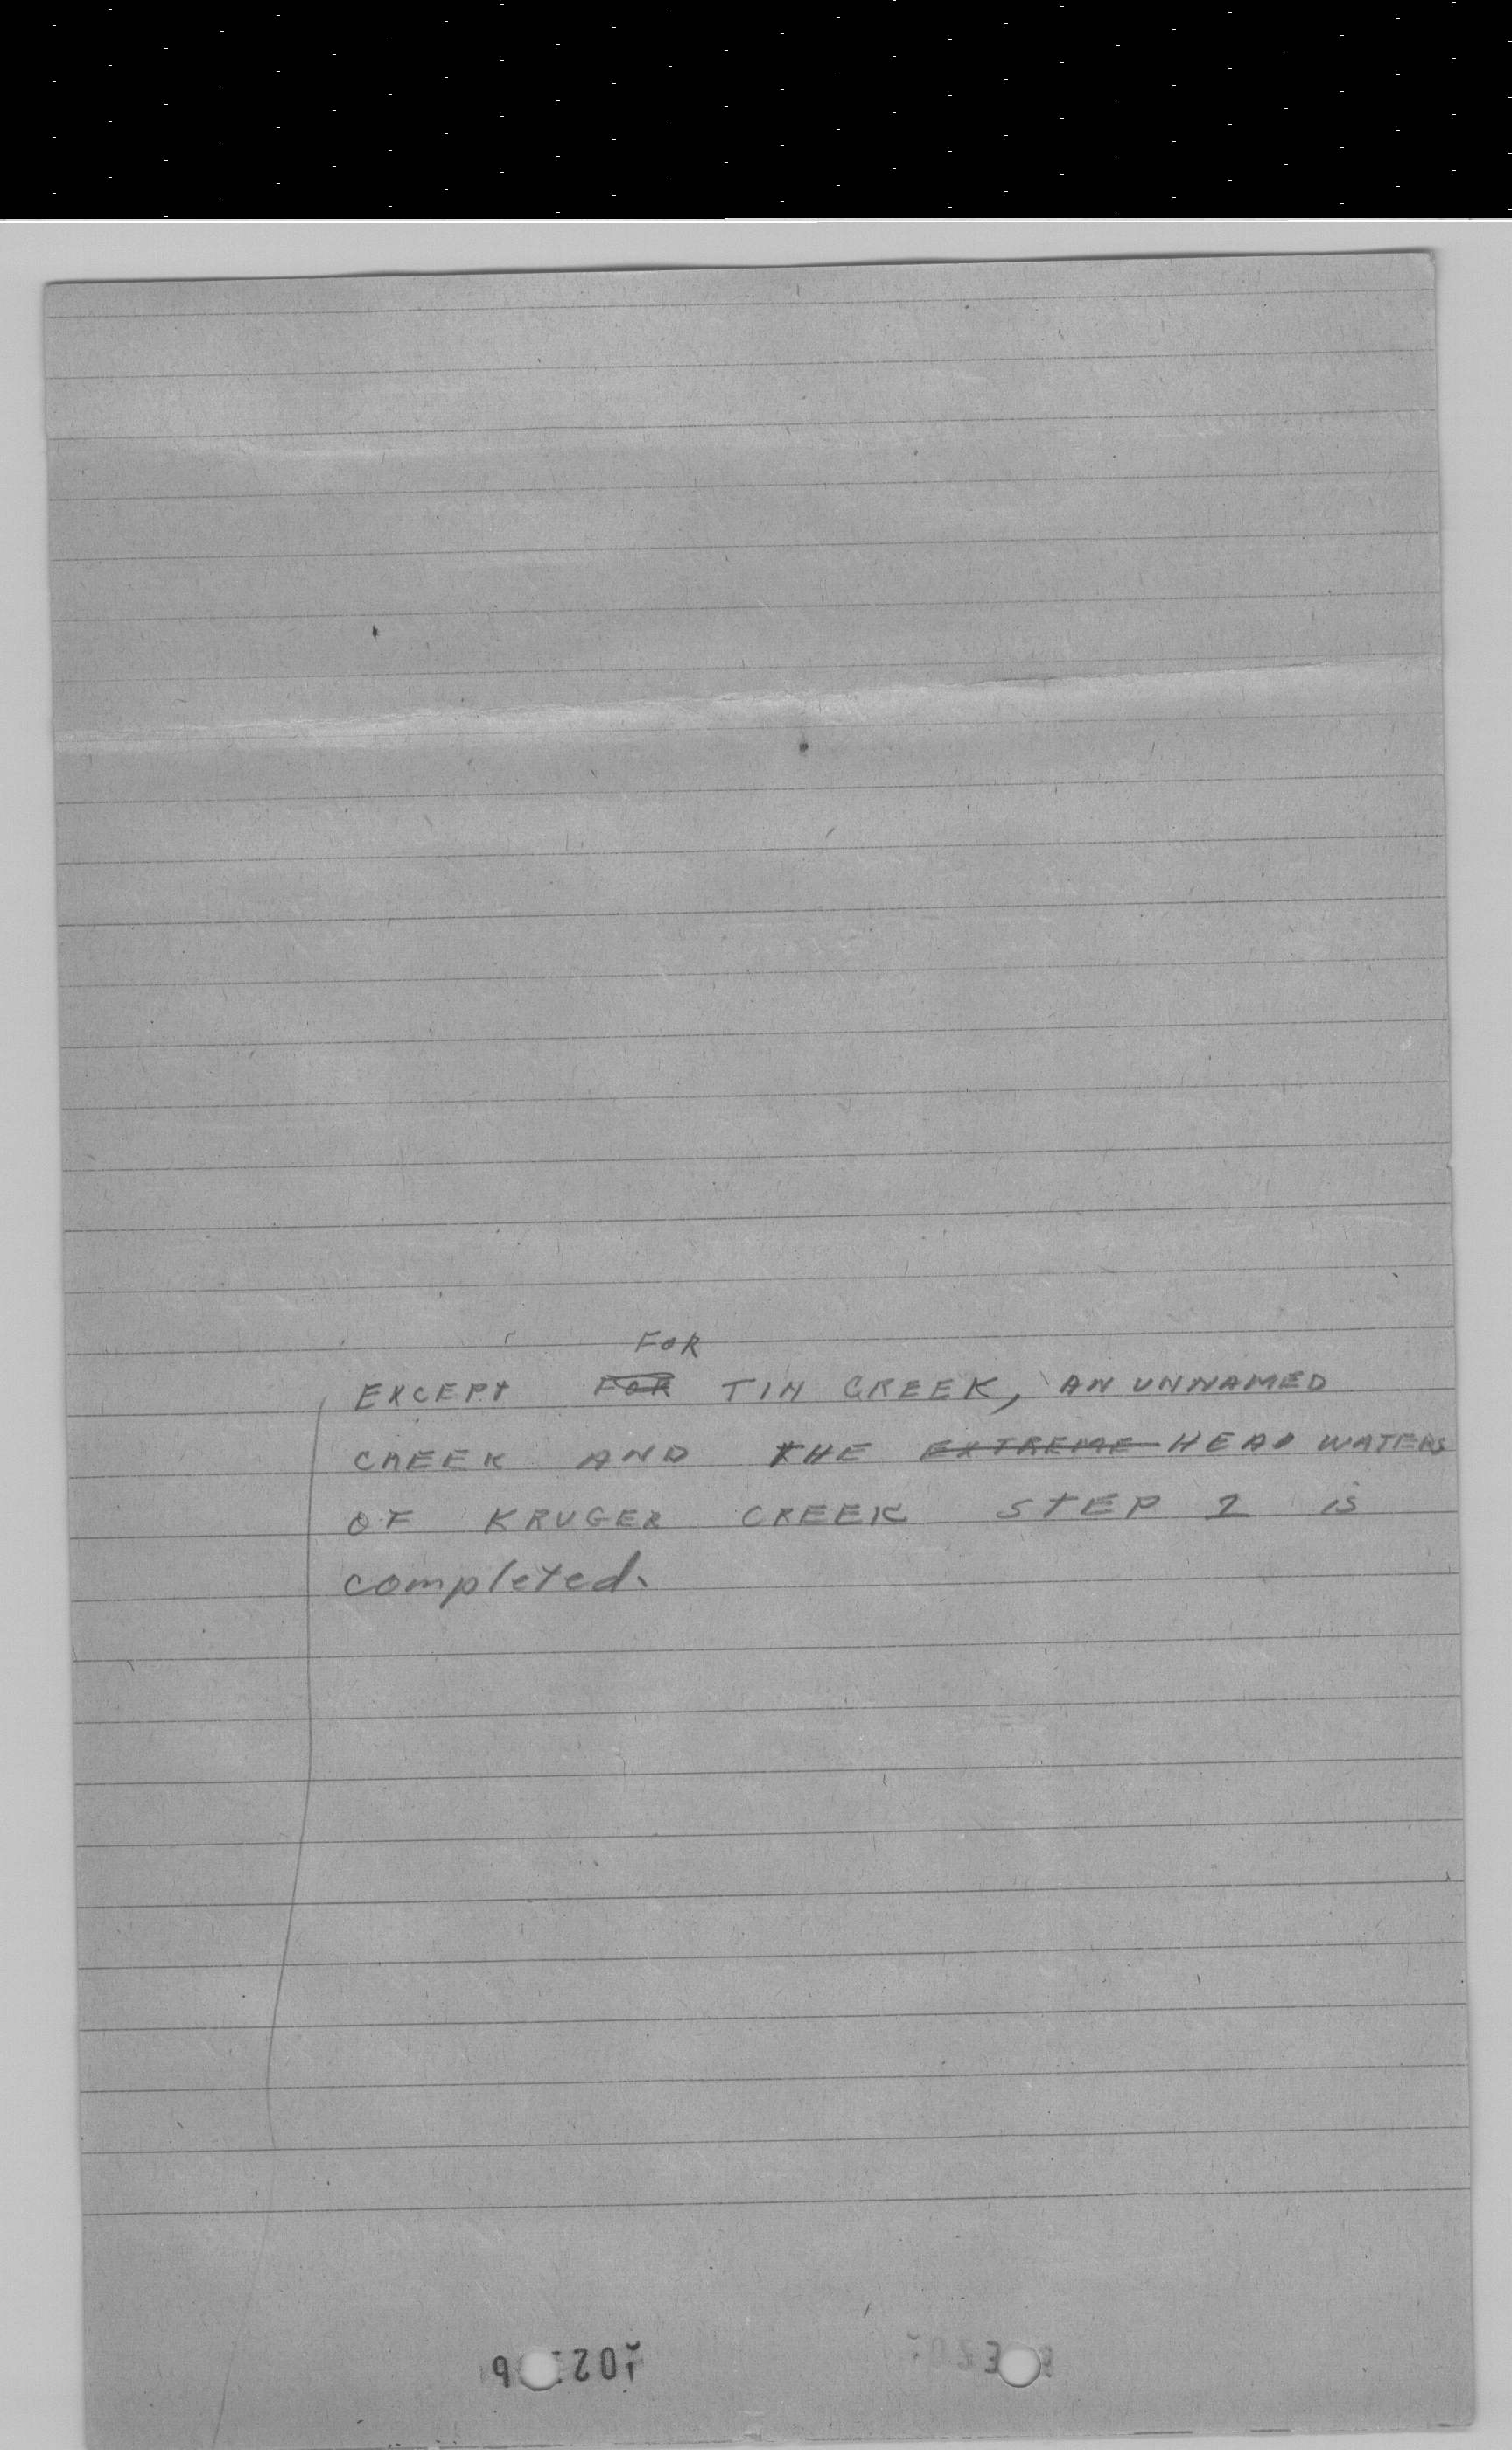 FOR
EXCEPT FOR TIN CREEK, AN UNNAMED
CREEK AND THE EXTREME HEAD WATERS
OF KRUGER CREEK STEP 1 is
completed.